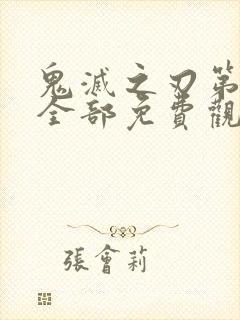 鬼滅之刃第
全部免費觀
張會莉